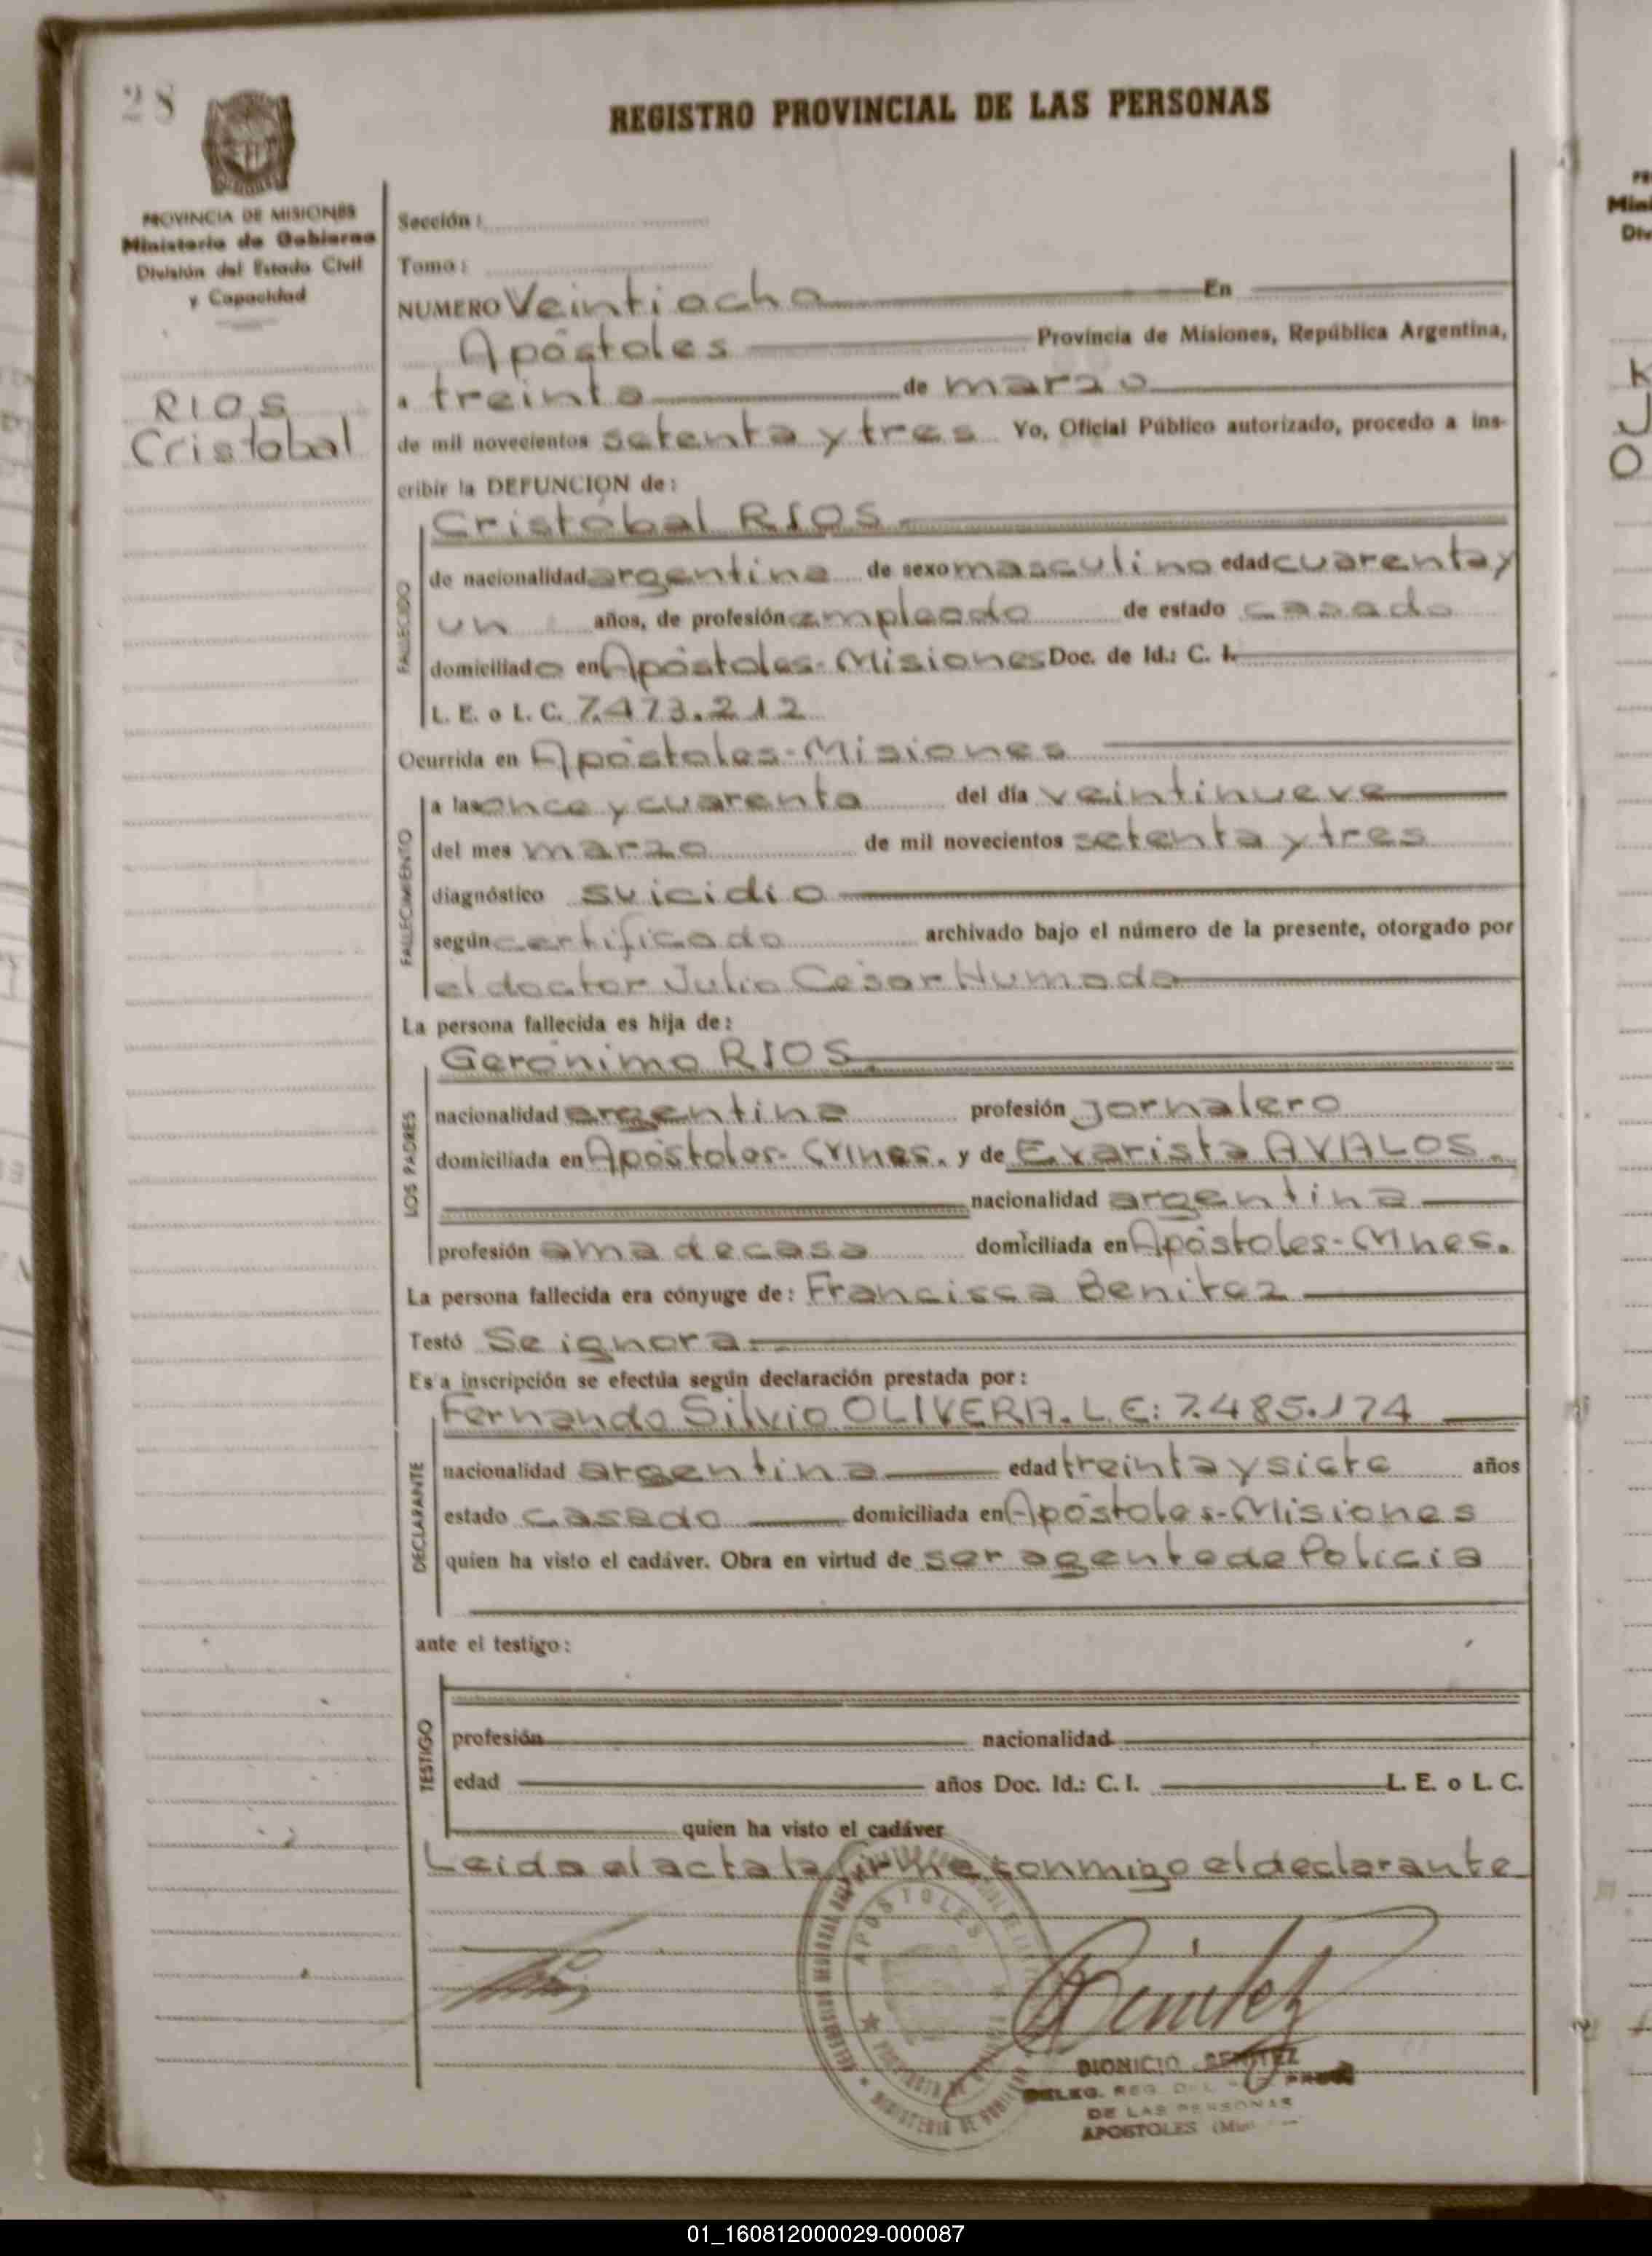 28
REGISTRO PROVINCIAL DE LAS PERSONAS
PROVINCIA DE MISIONES
Ministerio de Gobierno
División del Estado Civil
y Capacidad
RIOS
Cristobal
Sección:
Tomo:
NUMERO Veintiocho En
Apóstoles Provincia de Misiones, República Argentina,
a treinta de marzo
de mil novecientos setenta y tres Yo, Oficial Público autorizado, procedo a ins-
cribir la DEFUNCION de:
Cristóbal RIOS
FALLECIDO
de nacionalidad argentina de sexo masculino edad cuarenta y
un años, de profesión empleado de estado casado
domiciliado en Apóstoles-Misiones Doc. de Id.: C. I.
L. E. o L. C. 7.473.212
Ocurrida en Apóstoles-Misiones
FALLECIMIENTO
a las once y cuarenta del día veintinueve
del mes marzo de mil novecientos setenta y tres
diagnóstico suicidio
según certificado archivado bajo el número de la presente, otorgado por
el doctor Julio César Humada
La persona fallecida es hija de:
LOS PADRES
Gerónimo RIOS
nacionalidad argentina profesión jornalero
domiciliada en Apóstoles-Mnes. y de Evarista AVALOS.
nacionalidad argentina
profesión ama de casa domiciliada en Apóstoles-Mnes.
La persona fallecida era cónyuge de: Francisca Benitez
Testó Se ignora.
Es a inscripción se efectúa según declaración prestada por:
DECLARANTE
Fernando Silvio OLIVERA. L.E: 7.485.174
nacionalidad argentina edad treinta y siete años
estado casado domiciliada en Apóstoles-Misiones
quien ha visto el cadáver. Obra en virtud de ser agente de Policía
ante el testigo:
TESTIGO
profesión nacionalidad
edad años Doc. Id.: C. I. L. E. o L. C.
quien ha visto el cadáver
Leida el acta la firma conmigo el declarante
APOSTOLES
MINISTERIO DE
Benitez
DIONICIO BENITEZ
DELEG. REG. PROV.
DE LAS PERSONAS
APOSTOLES
01_160812000029-000087